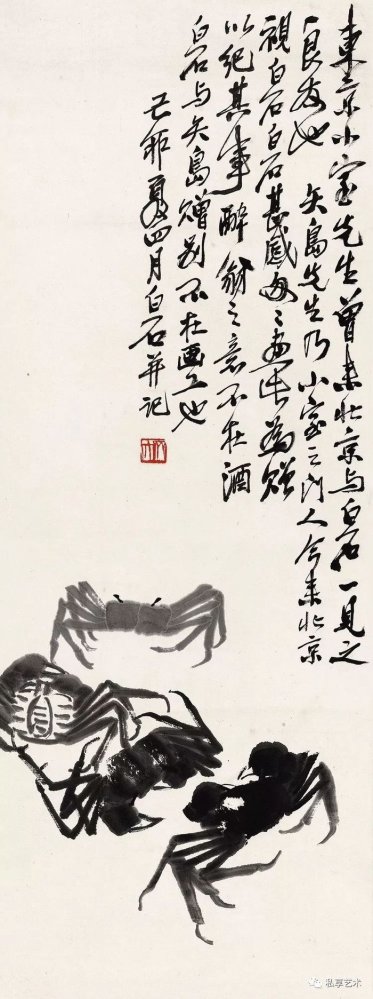 東京小室先生曾来北京与白石一見之
良友也 矢島先生乃小室之門人今来北京
視白石白石甚感画此為贈
以紀其事醉翁之意不在酒
白石与矢島贈别不在画工也
己卯夏四月白石并記
私享艺术